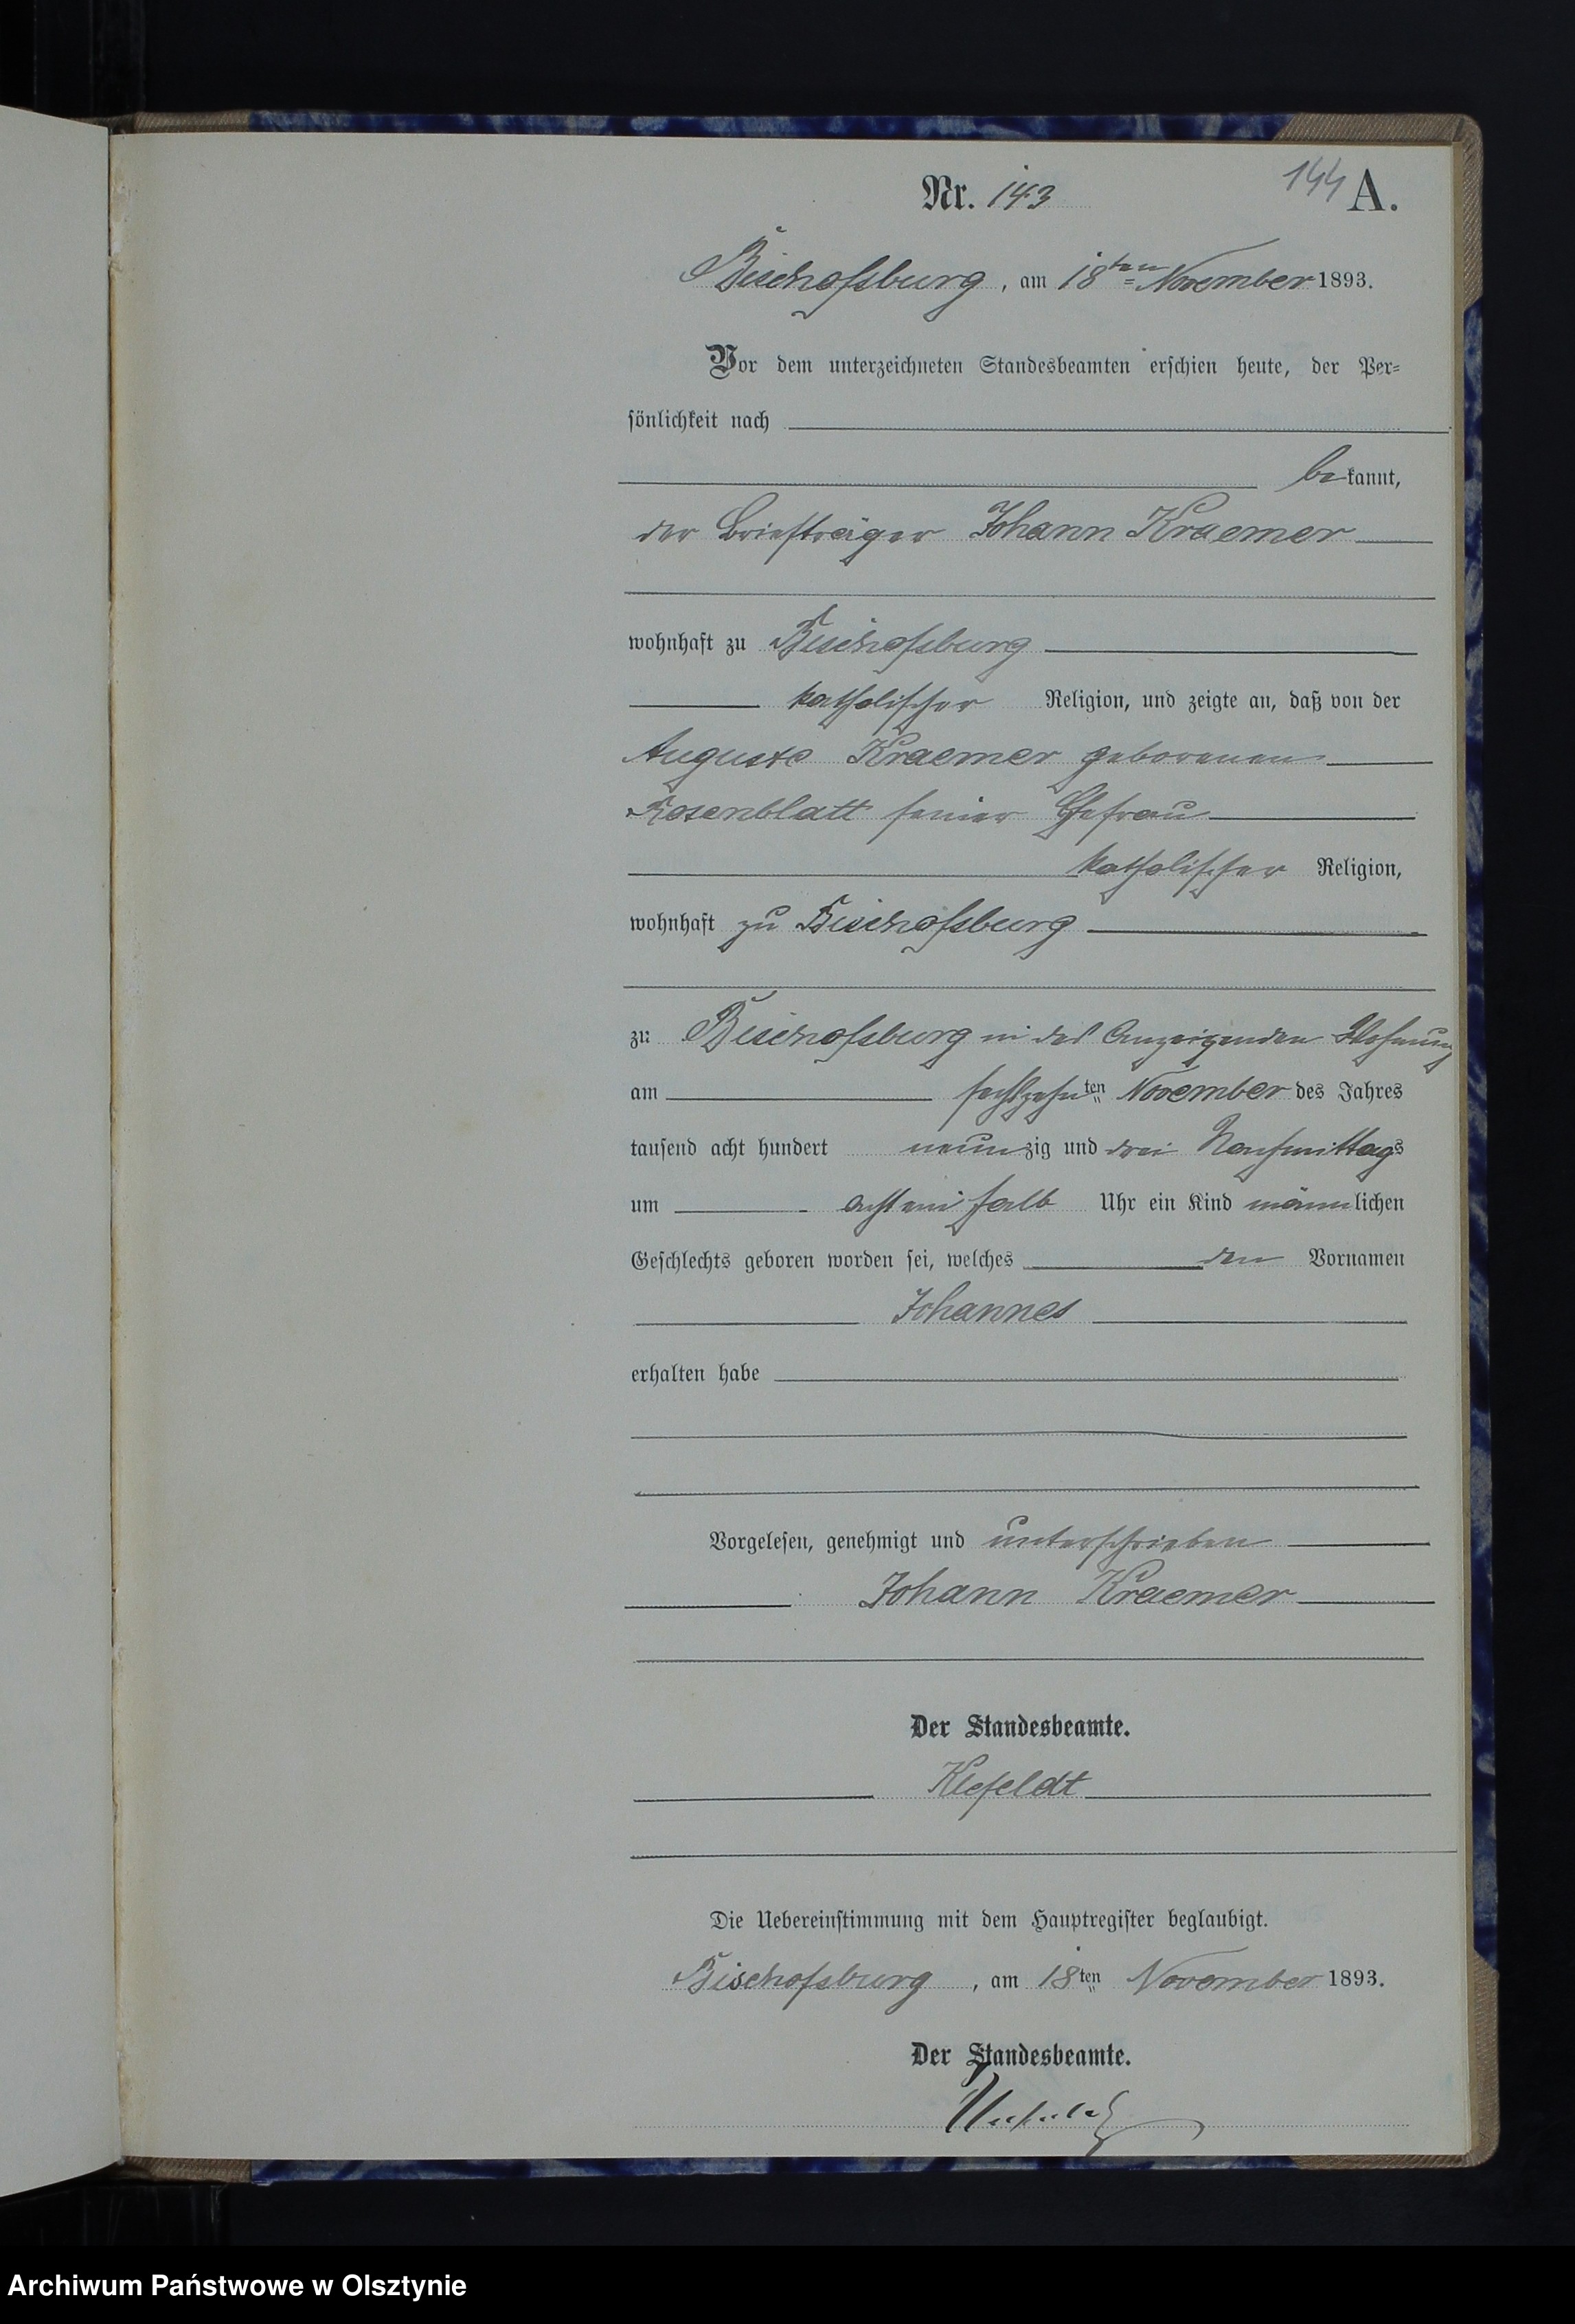 Nr. 143 144 A.
Bischofsburg, am 18ten November 1893.
Vor dem unterzeichneten Standesbeamten erschien heute, der Per=
sönlichkeit nach
bekannt,
der Briefträger Johann Kraemer
wohnhaft zu Bischofsburg
katholischer Religion, und zeigte an, daß von der
Auguste Kraemer geborenen
Rosenblatt seiner Ehefrau
katholischer Religion,
wohnhaft zu Bischofsburg
zu Bischofsburg in des Anzeigenden Wohnung
am sechszehnten November des Jahres
tausend acht hundert neunzig und drei Nachmittags
um acht ein halb Uhr ein Kind männlichen
Geschlechts geboren worden sei, welches den Vornamen
Johannes
erhalten habe
Vorgelesen, genehmigt und unterschrieben
Johann Kraemer
Der Standesbeamte.
Klefeldt
Die Uebereinstimmung mit dem Hauptregister beglaubigt.
Bischofsburg, am 18ten November 1893.
Der Standesbeamte.
Archiwum Państwowe w Olsztynie